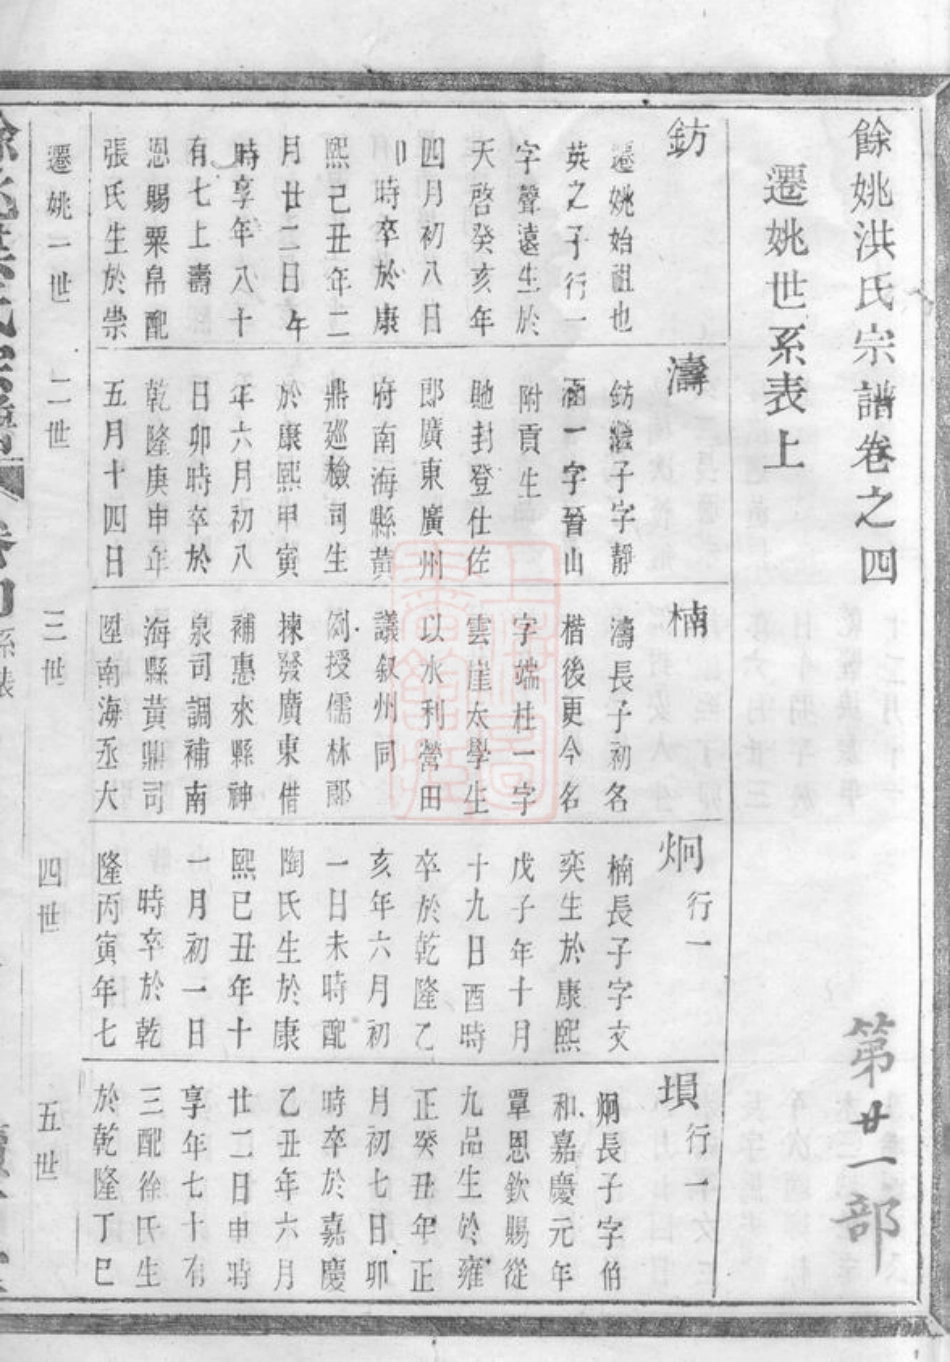 餘姚洪氏宗譜卷之四
第廿一部
遷姚世系表上
鈁
遷姚始祖也
英之子行一
字聲遠生於
天啓癸亥年
四月初八日
卯時卒於康
熙己丑年二
月廿二日午
時享年八十
有七上壽
恩賜粟帛配
張氏生於崇
遷姚一世
濤
鈁繼子字靜
涵一字晉山
附貢生
貤封登仕佐
郎廣東廣州
府南海縣黃
鼎巡檢司生
於康熙甲寅
年六月初八
日卯時卒於
乾隆庚申年
五月十四日
二世
楠
濤長子初名
楷後更今名
字端杜一字
雲崖太學生
以水利營田
議敘州同
例授儒林郎
揀發廣東借
補惠來縣神
泉司調補南
海縣黃鼎司
陞南海丞大
三世
炯 行一
楠長子字文
奕生於康熙
戊子年十月
十九日酉時
卒於乾隆乙
亥年六月初
一日未時配
陶氏生於康
熙己丑年十
一月初一日
時卒於乾
隆丙寅年七
四世
塤 行一
炯長子字伯
和嘉慶元年
覃恩欽賜從
九品生於雍
正癸丑年正
月初七日卯
時卒於嘉慶
乙丑年六月
廿二日申時
享年七十有
三配徐氏生
於乾隆丁巳
五世